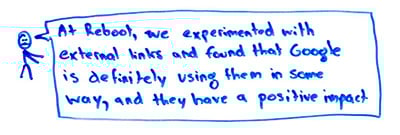 At Reboot, we experimented with
external links and found that Google
is definitely using them in some
way, and they have a positive impact